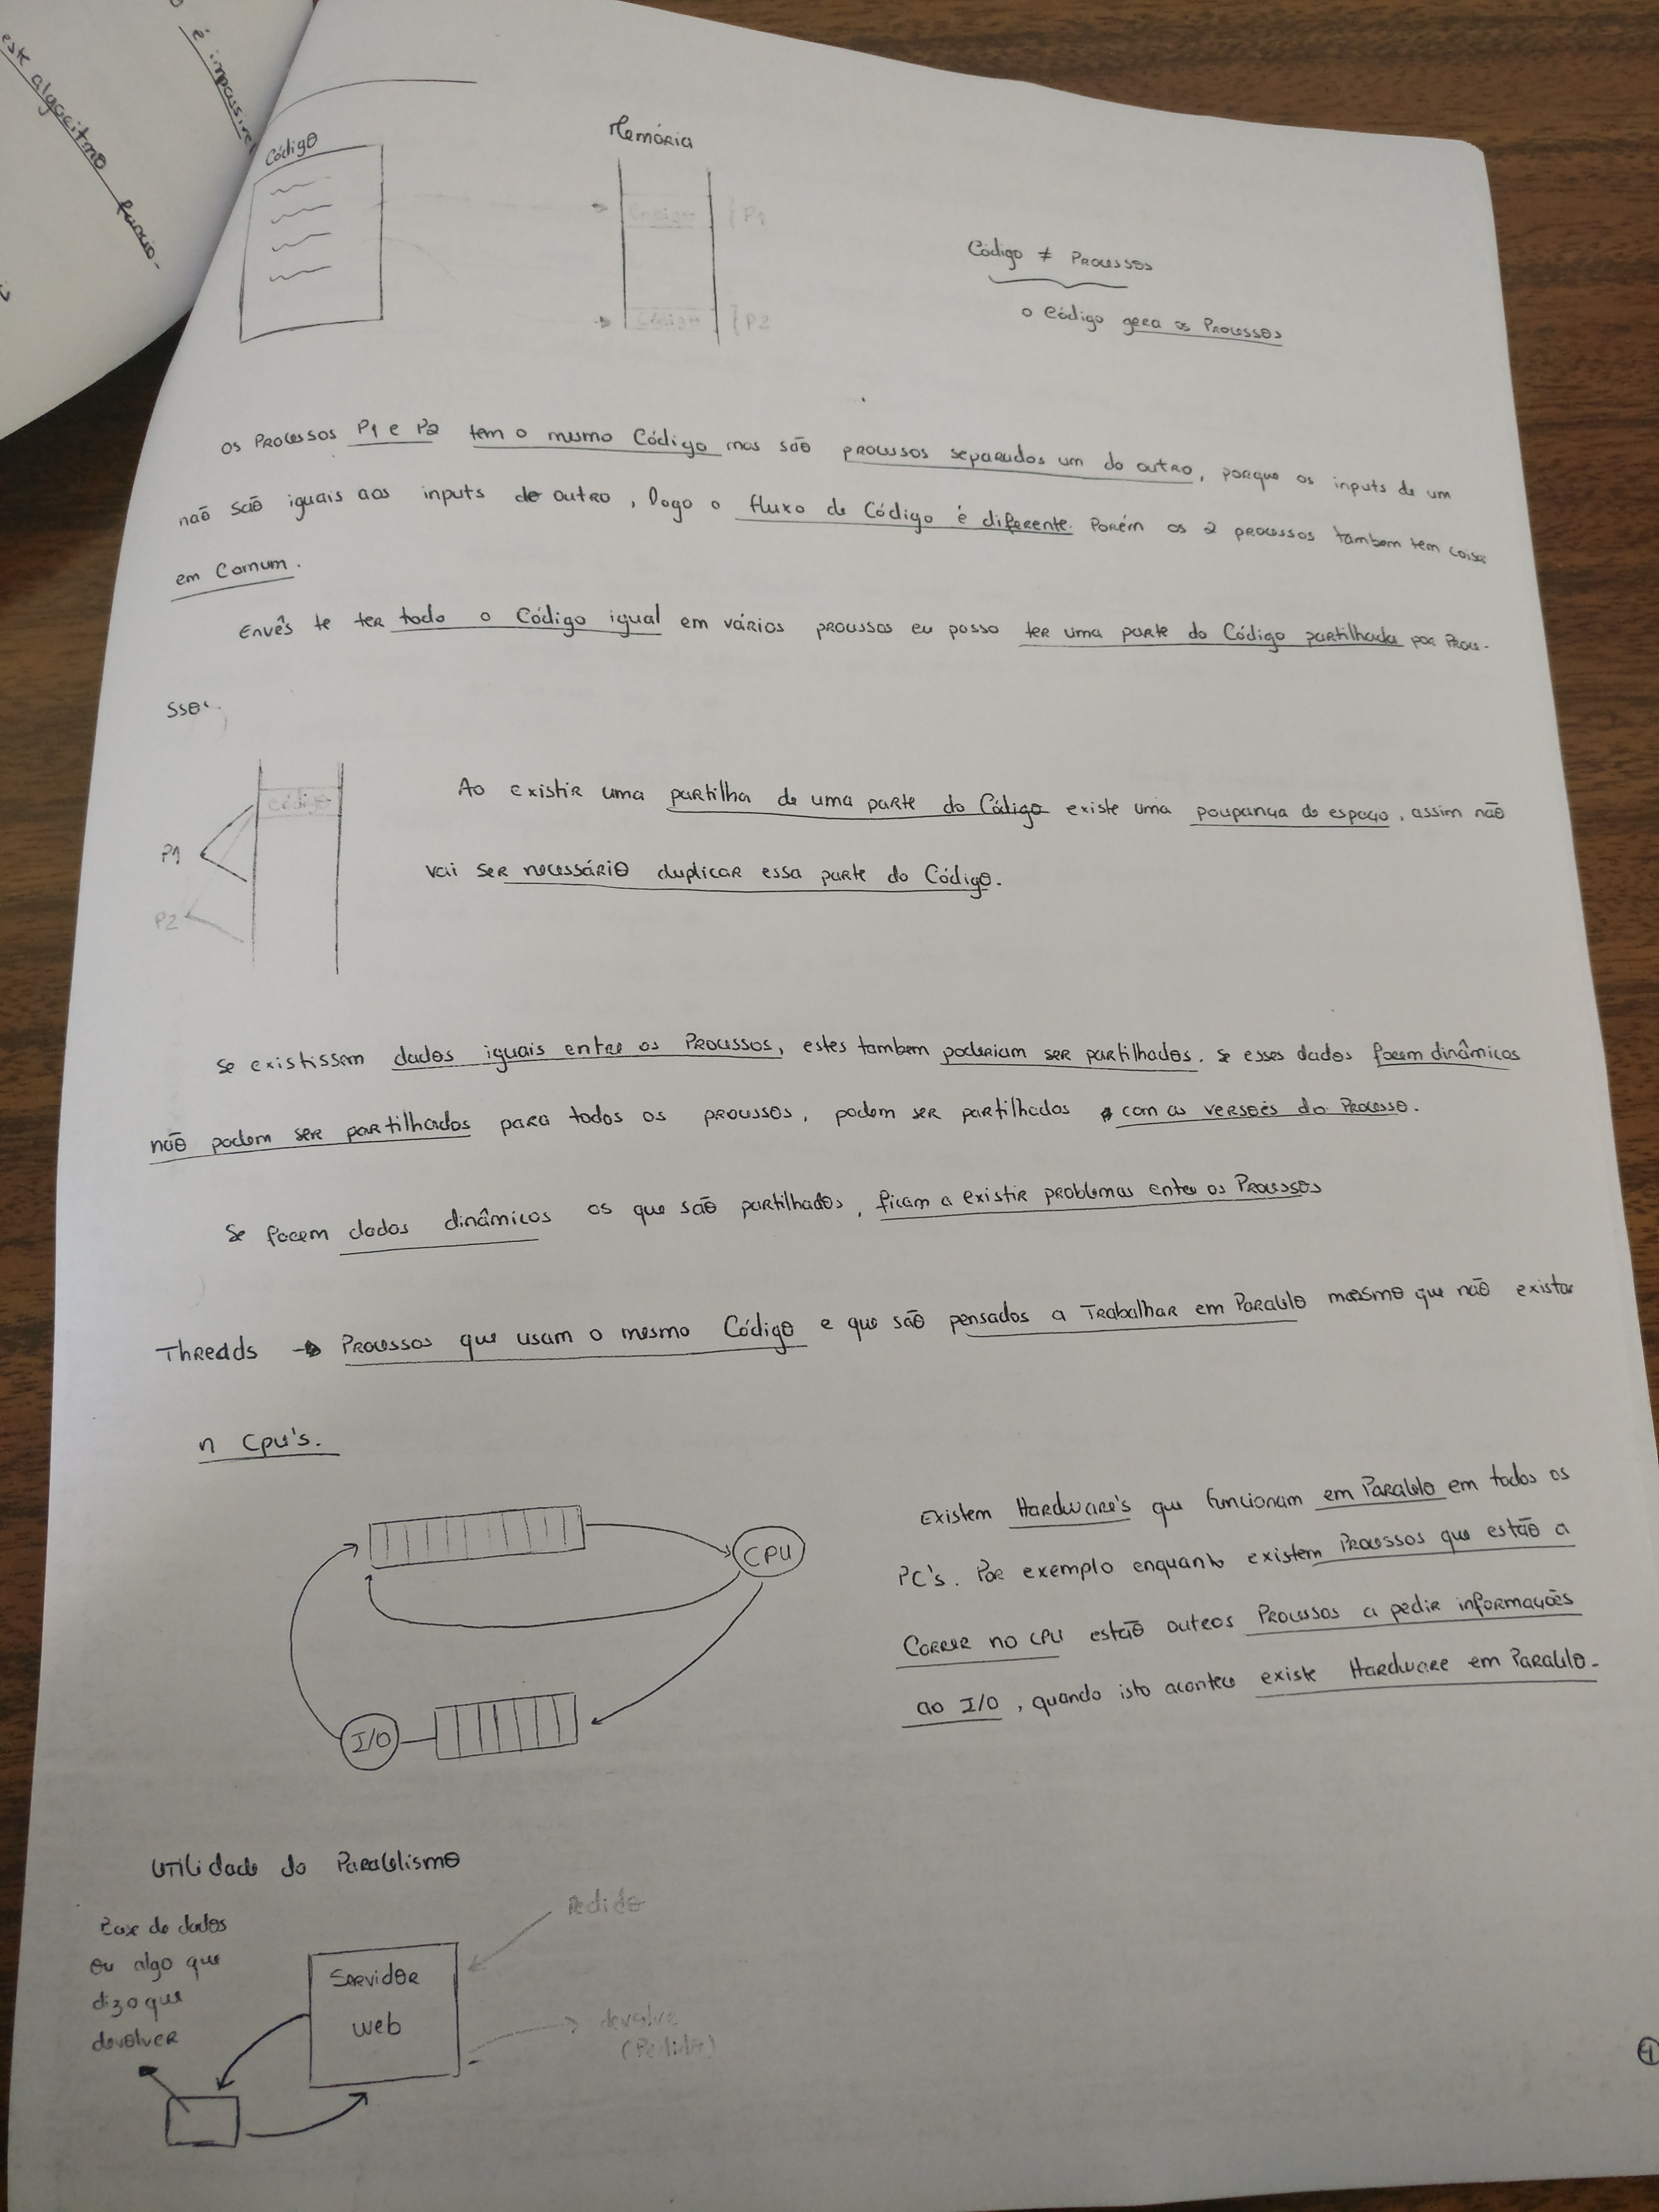 é impossível
este algoritmo funcio-
Código
Memória
Código } P1
Código } P2
Código ≠ Processos
o Código gera os Processos
Os Processos P1 e P2 tem o mesmo Código mas são processos separados um do outro, porque os inputs de um
não são iguais aos inputs do outro, logo o fluxo de Código é diferente. Porém os 2 processos tambem tem coisa
em Comum.
Envês te ter todo o Código igual em vários processos eu posso ter uma parte do Código partilhada por Proce-
ssos.
Código
P1
P2
Ao existir uma partilha de uma parte do Código existe uma poupança de espaço, assim não
vai ser necessário duplicar essa parte do Código.
Se existissem dados iguais entre os Processos, estes tambem poderiam ser partilhados. Se esses dados forem dinâmicos
não podem ser partilhados para todos os processos, podem ser partilhados com as versões do Processo.
Se forem dados dinâmicos os que são partilhados, ficam a existir problemas entre os Processos
Threads → Processos que usam o mesmo Código e que são pensados a Trabalhar em Paralelo mesmo que não existam
n Cpu's.
CPU
I/O
Existem Hardware's que funcionam em Paralelo em todos os
PC's. Por exemplo enquanto existem Processos que estão a
Correr no CPU estão outros Processos a pedir informações
ao I/O, quando isto acontece existe Hardware em Paralelo.
Utilidade do Paralelismo
Base de dados
ou algo que
diz o que
devolver
Servidor
web
Pedido
devolve
(Pedido)